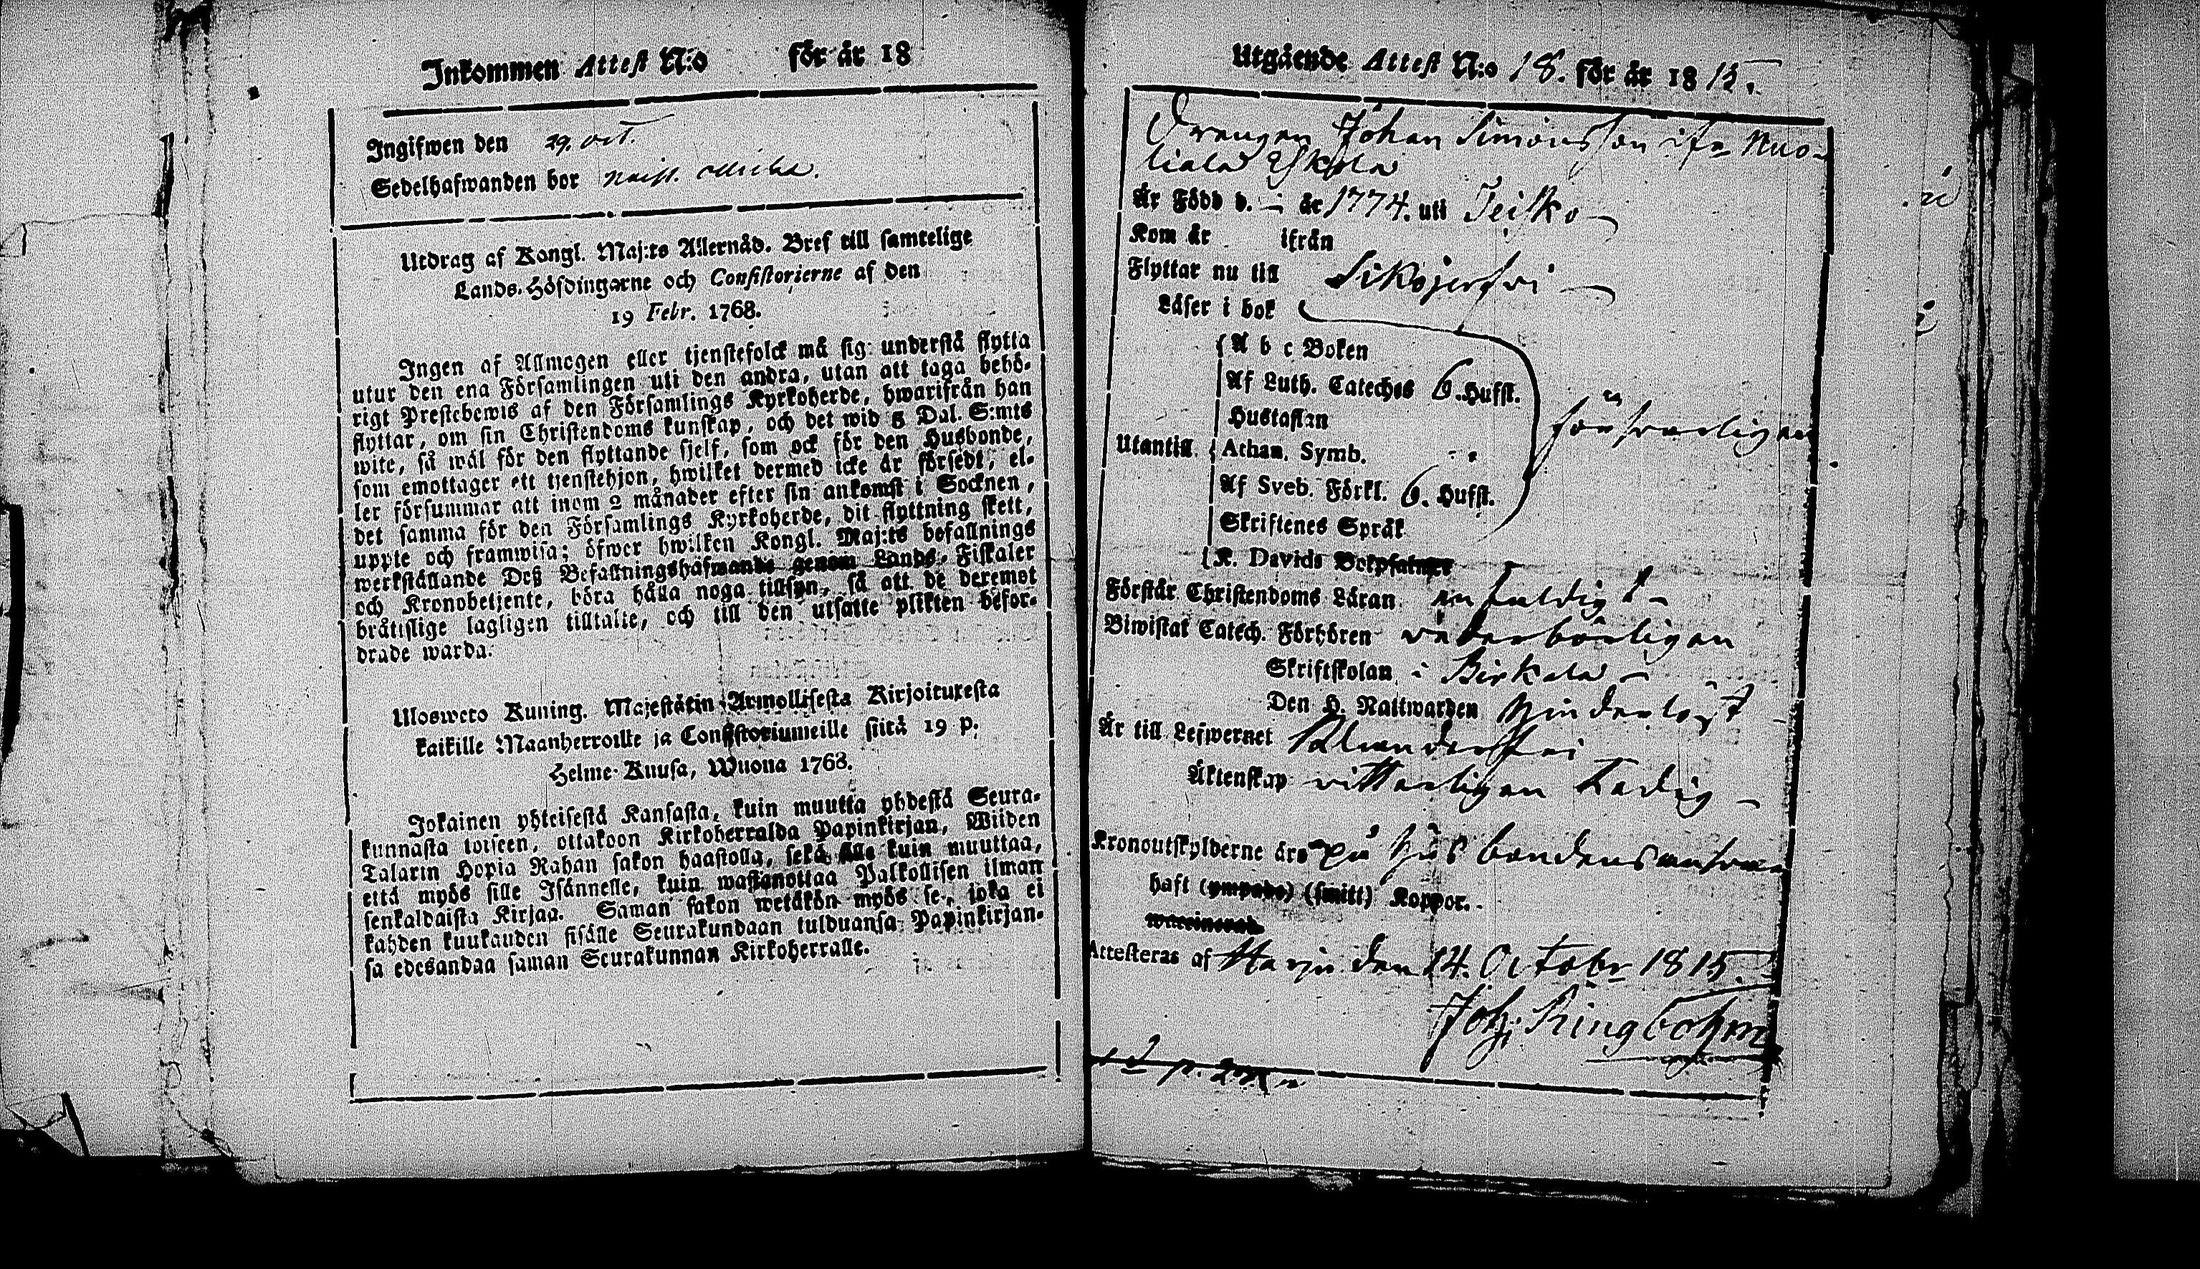 Inkommen Attest N:o för år 18
Ingifwen den 29. oct.
Sedelhafwanden bor
Utdrag af Kongl. Maj:ts Allernåd. Bref till samtelige
Lands-Höfdingarne och Consistorierne af den
19 Febr. 1768.
Ingen af Allmogen eller tjenstefolck må sig understå flytta
utur den ena Församlingen uti den andra, utan att taga behö-
rigt Prestebewis af den Församlings Kyrkoherde, hwarifrån han
flyttar, om sin Christendoms kunskap, och det wid 5 Dal. S:mts
wite, så wäl för den flyttande sjelf, som ock för den Husbonde,
som emottager ett tjenstehjon, hwilket dermed icke är försedt, el-
ler försummar att inom 2 månader efter sin ankomst i Socknen,
det samma för den Församlings Kyrkoherde, dit flyttning skett,
uppte och framwisa; öfwer hwilken Kongl. Maj:ts befallnings
werkställande Deß Befallningshafwande genom Lands-Fiskaler
och Kronobetjente, böra hålla noga tillsyn, så att de deremot
bråttslige lagligen tilltalte, och till den utsatte plikten befor-
drade warda.
Ulosweto Kuning. Majestätin Armollisesta Kirjoituxesta
kaikille Maanherroille ja Consistoriumeille siitä 19 p.
Helme-Kuusa, Wuona 1768.
Jokainen yhteisestä Kansasta, kuin muutta yhdestä Seura-
kunnasta toiseen, ottakoon Kirkoherralda Papinkirjan, Wiiden
Talarin Hopia Rahan sakon haastolla, sekä sille kuin muuttaa,
että myös sille Isännelle, kuin wastanottaa Palkollisen ilman
senkaldaista Kirjaa. Saman sakon wetäkön myös se, joka ei
kahden kuukauden sisälle Seurakundaan tulduansa Papinkirjan-
sa edesandaa saman Seurakunnan Kirkoherralle.
Utgående Attest N:o 18. för år 1815.
Drengen Johan Simonsson ifr. Nuo-
liala Yskola
Är Född d. — år 1774. uti Teisko —
Kom år ifrån
Flyttar nu till Sikojerfvi —
Läser i bok
A b c Boken
Af Luth. Cateches 6. Hufst.
Hustaflan
försvarligen
Utantill. Athan. Symb.
Af Sveb. Förkl. 6. Hufst.
Skriftenes Språk
K. Davids Botpsalmer
Förstår Christendoms Läran enfaldigt —
Biwistat Catech. Förhören vederbörligen
Skriftskolan i Birkala —
Den H. Nattwarden hinderlöst
Är till Lefwernet klanderfri
Äktenskap vitterligen Ledig —
Kronoutskylderne äro på husbondens ansvar
haft (ympade) (smitt) Koppor.
waccinerad
Attesteras af Harju den 14. Octobr 1815.
Joh: Ringbohm